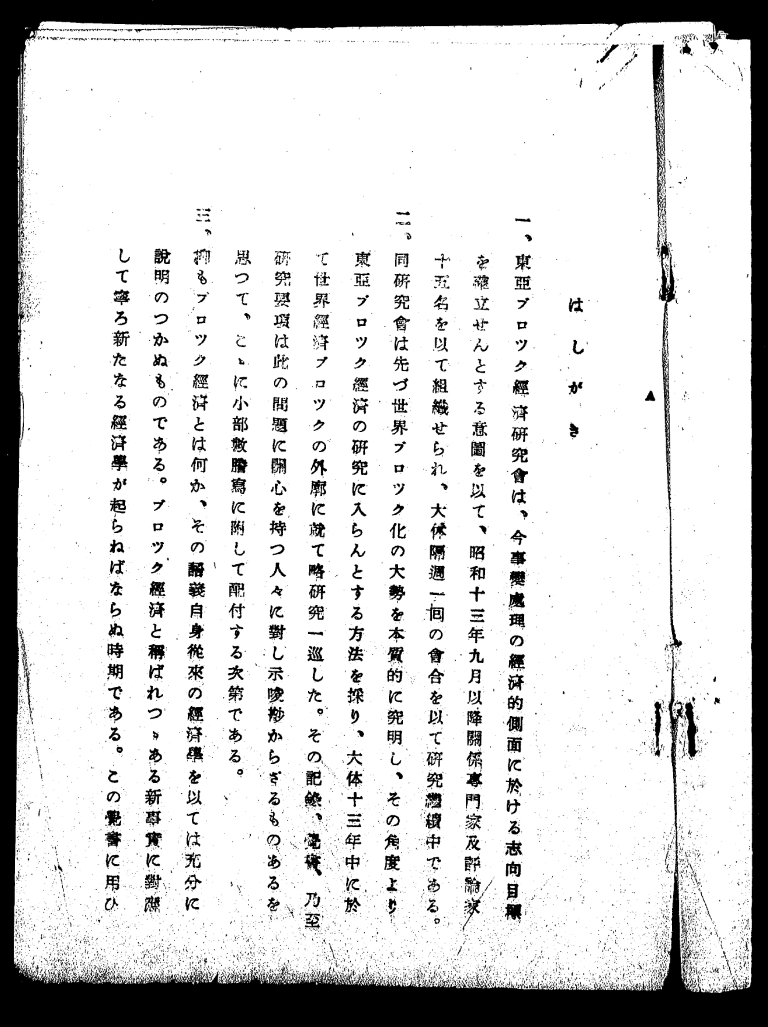 はしがき
一、東亞ブロツク經濟硏究會は、今事變處理の經濟的側面に於ける志向目標
を確立せんとする意圖を以て、昭和十三年九月以降關係專門家及評論家
十五名を以て組織せられ、大体隔週一回の會合を以て硏究繼續中である。
二、同硏究會は先づ世界ブロツク化の大勢を本質的に究明し、その角度より
東亞ブロツク經濟の硏究に入らんとする方法を採り、大体十三年中に於
て世界經濟ブロツクの外廓に就て略硏究一巡した。その記錄、覺書、乃至
硏究要項は此の問題に關心を持つ人々に對し示唆尠からざるものあるを
思つて、こゝに小部數謄寫に附して配付する次第である。
三、抑もブロツク經濟とは何か、その語義自身從來の經濟學を以ては充分に
說明のつかぬものである。ブロツク經濟と稱ばれつゝある新事實に對應
して寧ろ新たなる經濟學が起らねばならぬ時期である。この覺書に用ひ